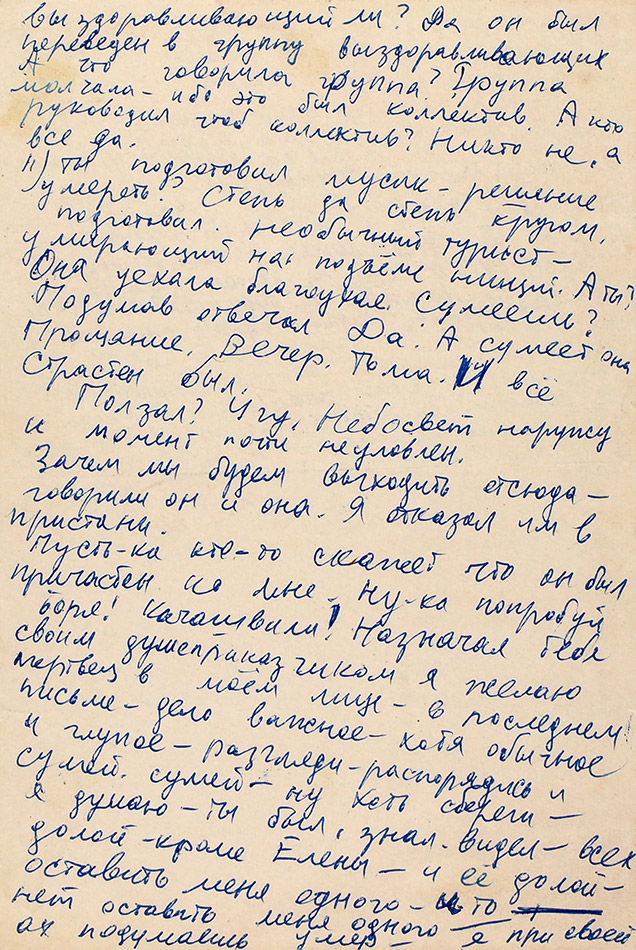 выздоравливающий ли? Да он был
переведен в группу выздоравливающих
А что говорила группа? Группа
молчала – ибо это был коллектив. А кто
руководил чтоб коллектив? Никто не, а
все да.
ты подготовил мусик – решение
умереть? Степь да степь кругом.
подготовил. необычный турист –
умирающий на подъёме нищий. А ты?
Она уехала благоухая. сумеешь?
Подумав отвечал Да. А сумеет она
Прощание. Вечер. Тьма. И всё
Страстен был.
Ползал? Угу. Небосвет наружу
и момент почти неуловлен.
Зачем мы будем выходить отсюда –
говорили он и она. Я отказал им в
пристани.
Пусть-ка кто-то скажет что он был
причастен ко мне – ну-ка попробуй
боря! Качашвили! Назначал тебя
своим душеприказчиком я желаю
мертвец в моём лице – в последнем
письме – дело важное – хотя обычное
и глупое – разгляди – распорядись и
сумей. сумей – ну хоть сбереги –
я думаю – ты был, знал. видел – всех
долой – кроме Елены – и её долой –
оставить меня одного – и то
нет оставить меня одного – я при своей
ах подумаешь умер –